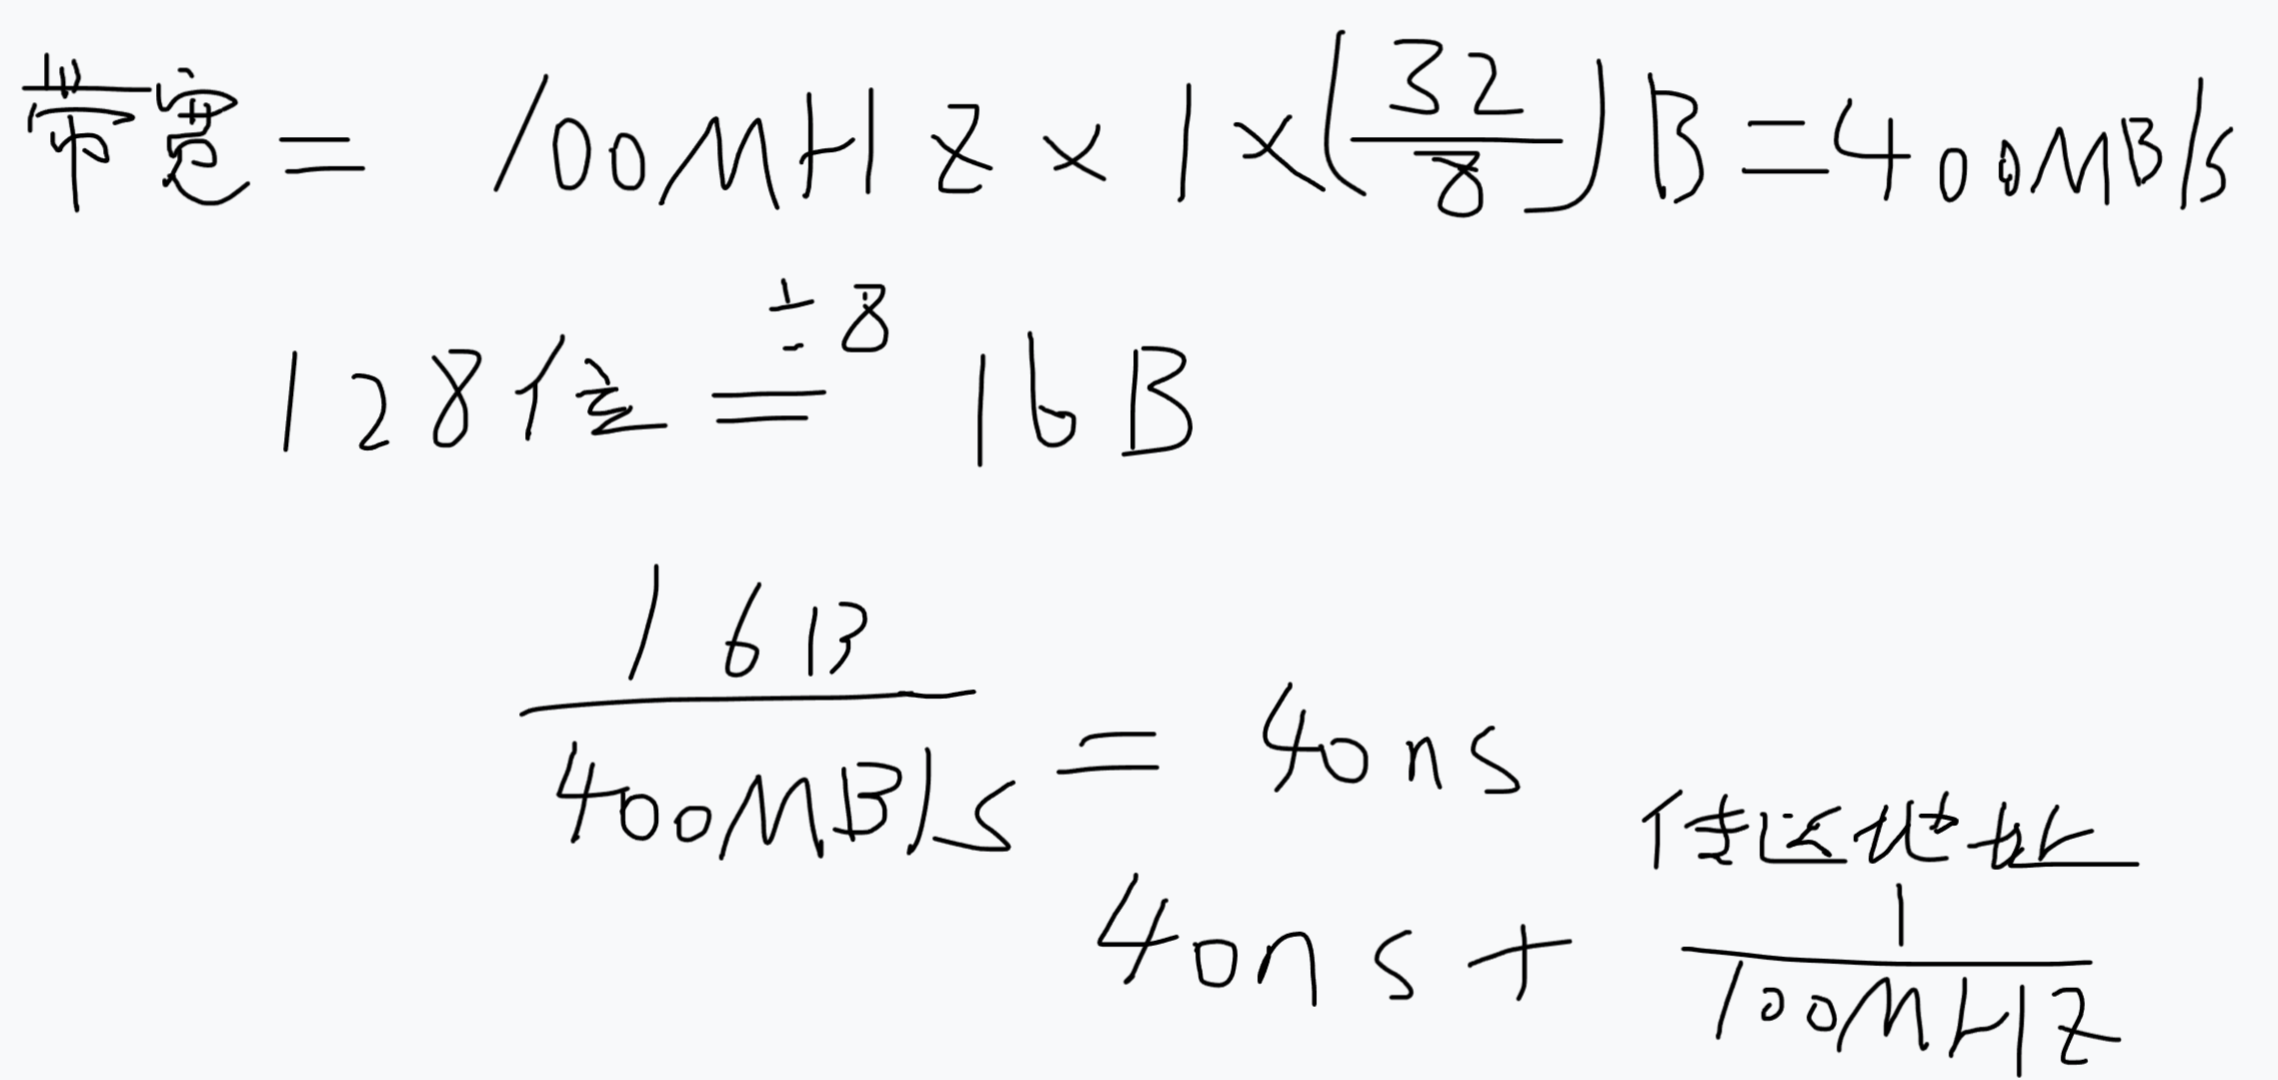 带宽 = 100MHz × 1 × (32/8)B = 400MB/s
÷8
128位 = 16B
16B/400MB/s = 40ns
传送地址
40ns + 1/100MHz